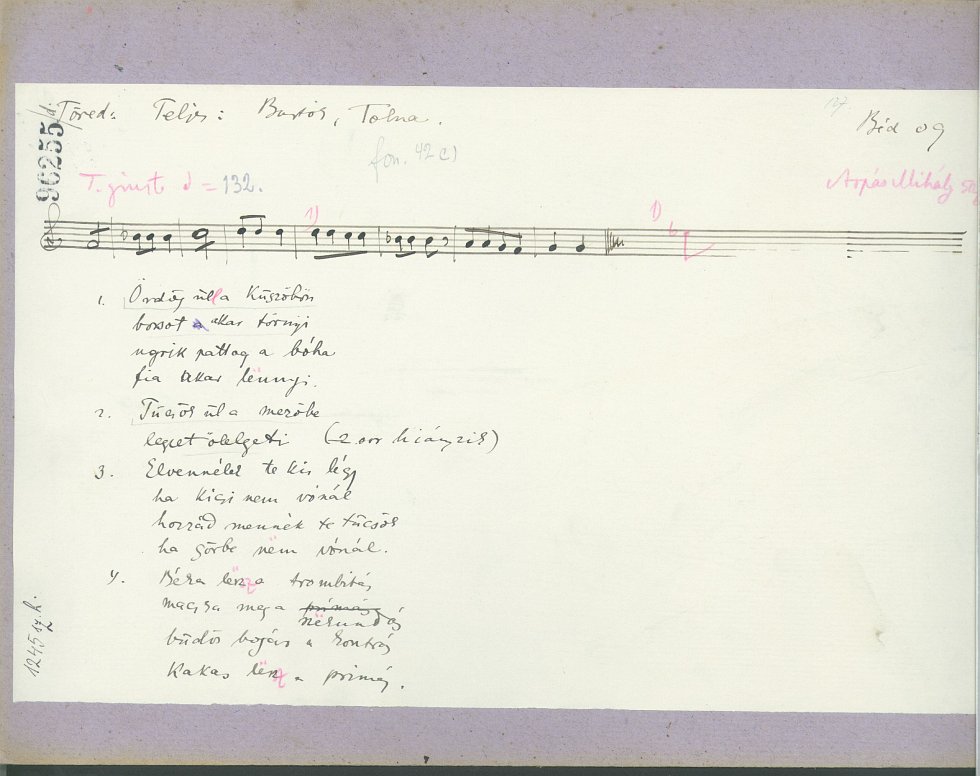 Töred: Teljes: Bartók, Tolna.
Béd 09
96255/d.
fon. 42 c)
T. giusto = 132.
Árpás Mihály
1)
1)
1. Ördög ül a küszöbön
bocsot a akar törnyi
ugrik pattog a bóha
fia akar lënnyi.
2. Tücsök ül a mezőbe
legyet ölelgeti (-2 sor hiányzik)
3. Elvennélek te kis légy
ha kicsi nem vónál
hozzád mennék te tücsök
ha görbe nëm vónál.
4. Béka lësz a trombitás
macska meg a primás szëkundás
büdös bogár a kontrás
kakas lësz a primás.
1245 h.